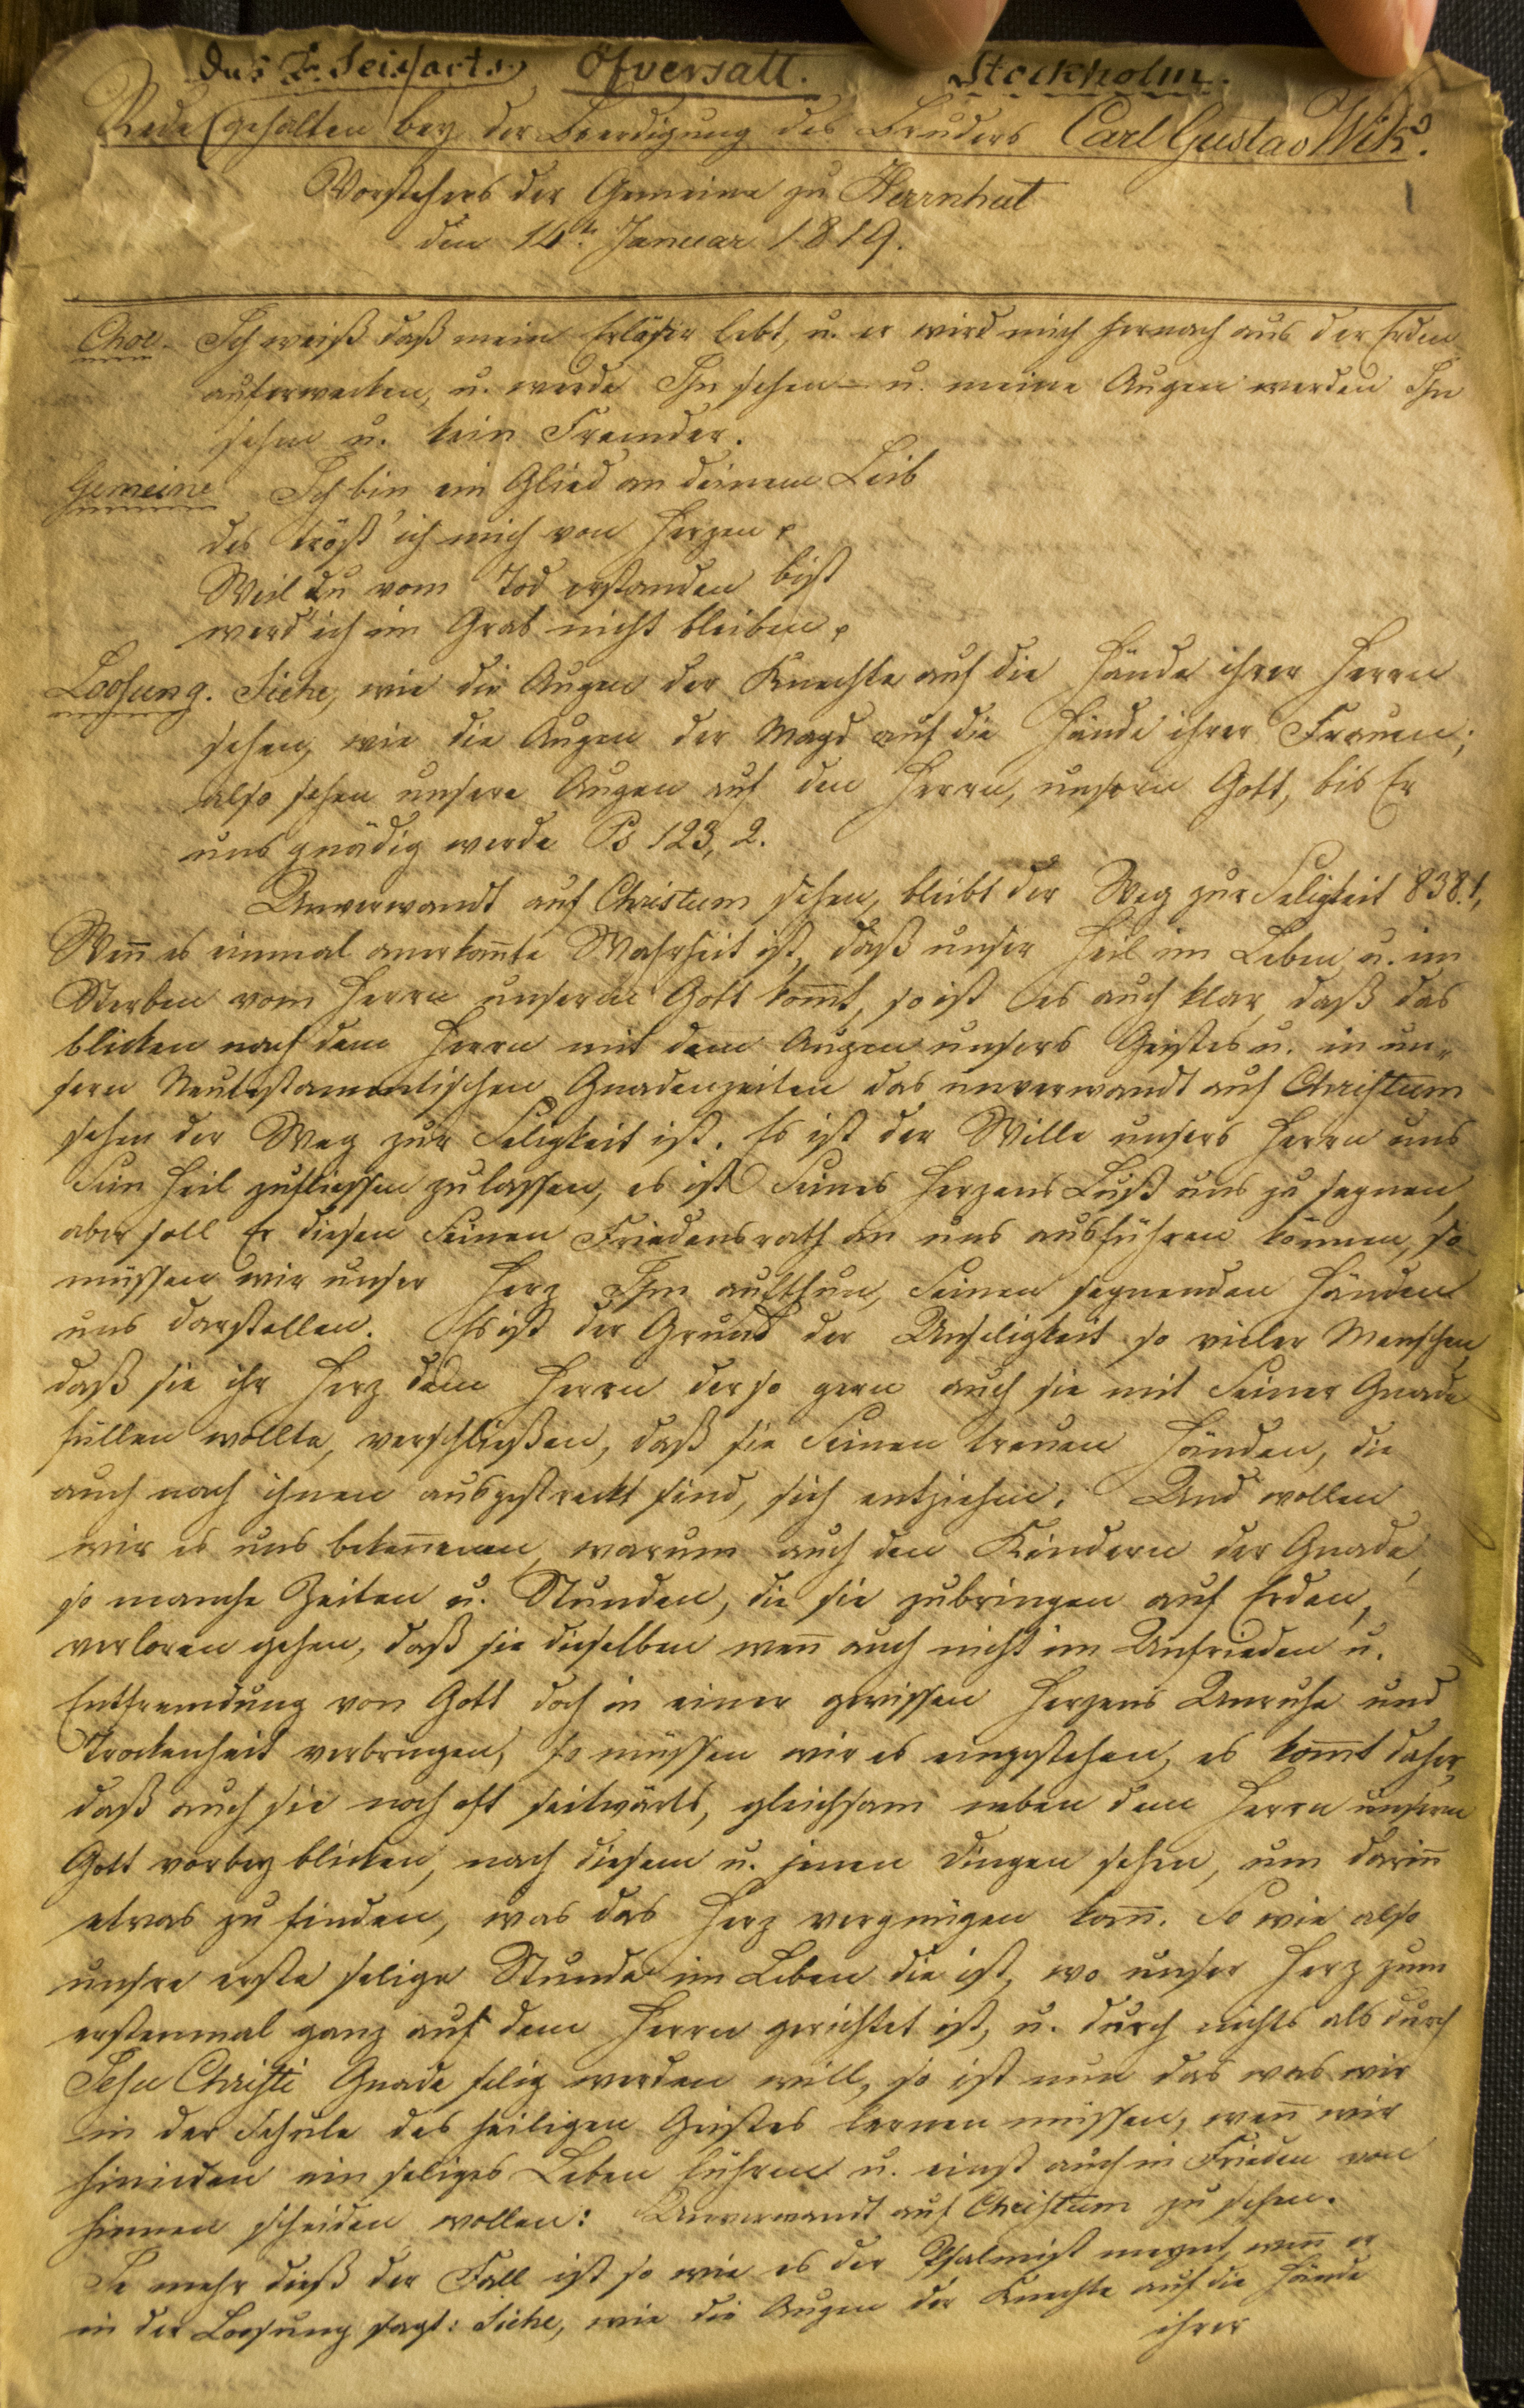 Öfversatt. Stockholm.
Rede gehalten bey der Beerdigung des Bruders Carl Gustav Wik.
Vorstehers der Gemeine zu Herrnhut
den 14t. Januar 1819.
Chor. Ich weiß daß mein Erlöser lebt, u. er wird mich hernach aus der Erden
auferwecken, u. werde Ihn sehen – u. meine Augen werden Ihn
sehen u. kein Fremder.
Gemeine Ich bin ein Glied an deinem Leib
des tröst' ich mich von Herzen,
Weil du vom Tod erstanden bist
werd' ich im Grab nicht bleiben,
Loosung. Siehe, wie die Augen der Knechte auf die Hände ihrer Herrn
sehen, wie die Augen der Magd auf die Hände ihrer Frauen;
also sehen unsere Augen auf den Herrn, unsern Gott, bis Er
uns gnädig werde Ps 123, 2.
Unverwandt auf Christum sehen, bleibt der Weg zur Seligkeit 838.1,
Weñ es einmal anerkañte Wahrheit ist, daß unser Heil im Leben u. im
Sterben vom Herrn unserm Gott kom̃t, so ist es auch klar, daß das
blicken nach dem Herrn mit dem Augen unsers Geistes u. in un-
sern Neutestamentischen Gnadenzeiten das unverwandt auf Christum
sehen der Weg zur Seligkeit ist. Es ist der Wille unsers Herrn uns
Sein Heil zufliessen zu lassen, es ist Seines Herzens Lust uns zu segnen,
aber soll Er diesen Seinen Friedensrath an uns ausführen können, so
müssen wir unser Herz Ihm aufthun, Seinen segnenden Händen
uns darstellen. Es ist der Grund der Unseligkeit so vieler Menschen,
daß sie ihr Herz dem Herrn der so gern auch sie mit Seiner Gnade
füllen wollte, verschließen, daß sie Seinen treuen Händen, die
auch nach ihnen ausgestreckt sind, sich entziehen. Und wollen
wir es uns bekeñen, warum auch den Kindern der Gnade,
so manche Zeiten u. Stunden, die sie zubringen auf Erden,
verloren gehen, daß sie dieselben weñ auch nicht im Unfrieden u.
Entfremdung von Gott doch in einer gewissen Herzens Unruhe und
Trockenheit verbringen, so müssen wir es eingestehen, es kom̃t daher,
daß auch sie noch oft seitwärts, gleichsam neben dem Herrn unserm
Gott vorbey blicken, nach diesem u. jenen Dingen sehen, um darin̄
etwas zu finden, was das Herz vergnügen kañ. So wie also
unsre erste selige Stunde im Leben die ist, wo unser Herz zum
erstenmal ganz auf dem Herrn gerichtet ist, u. durch nichts als durch
Jesu Christi Gnade selig werden will, so ist nun das was wir
in der Schule des heiligen Geistes lernen müssen, weñ wir
hinieden ein seliges Leben führen u. einst auch in Frieden von
hinnen scheiden wollen: Unverwandt auf Christum zu sehen.
Je mehr dieß der Fall ist so wie es der Psalmist meynt, weñ er
in der Loosung sagt: Siehe, wie die Augen der Knechte auf die Hände
ihrer